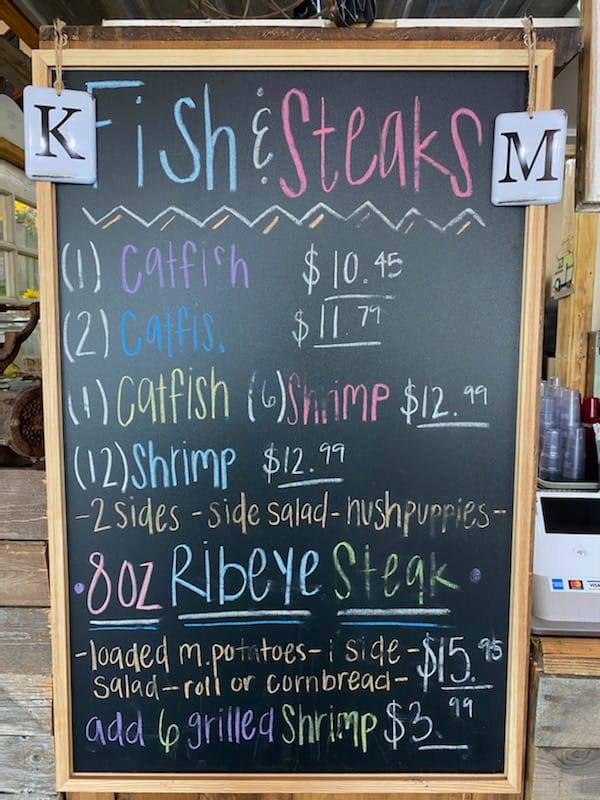 K Fish & Steaks M
(1) Catfish $10.45
(2) Catfis. $11.79
(1) Catfish (6) Shrimp $12.99
(12) Shrimp $12.99
-2 sides - side salad - hushpuppies -
8oz Ribeye Steak
-loaded m.potatoes - 1 side - $15.95
salad - roll or cornbread -
add 6 grilled Shrimp $3.99